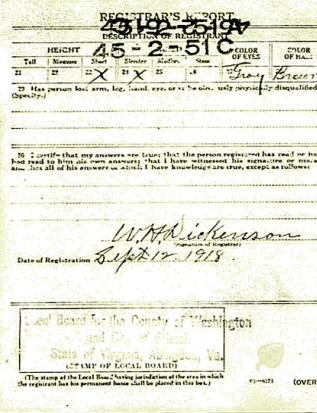 REGISTRAR'S REPORT
45-2-51 C
DESCRIPTION OF REGISTRANT
HEIGHT
COLOR OF EYES
COLOR OF HAIR
Tall Medium Short Slender Medium Stout
21 22 X 24 X 25 26 Gray Brown
29 Has person lost arm, leg, hand, eye, or is he obviously physically disqualified?
(Specify.)
30 I certify that my answers are true; that the person registered has read or has
had read to him his own answers; that I have witnessed his signature or mark,
and that all of his answers of which I have knowledge are true, except as follows:
W.H. Dickenson
(Signature of Registrar)
Date of Registration Sept 12, 1918.
Local Board for the County of Washington
State of Virginia, Abingdon, Va.
(STAMP OF LOCAL BOARD)
(The stamp of the Local Board having jurisdiction of the area in which
the registrant has his permanent home shall be placed in this box.)
(OVER